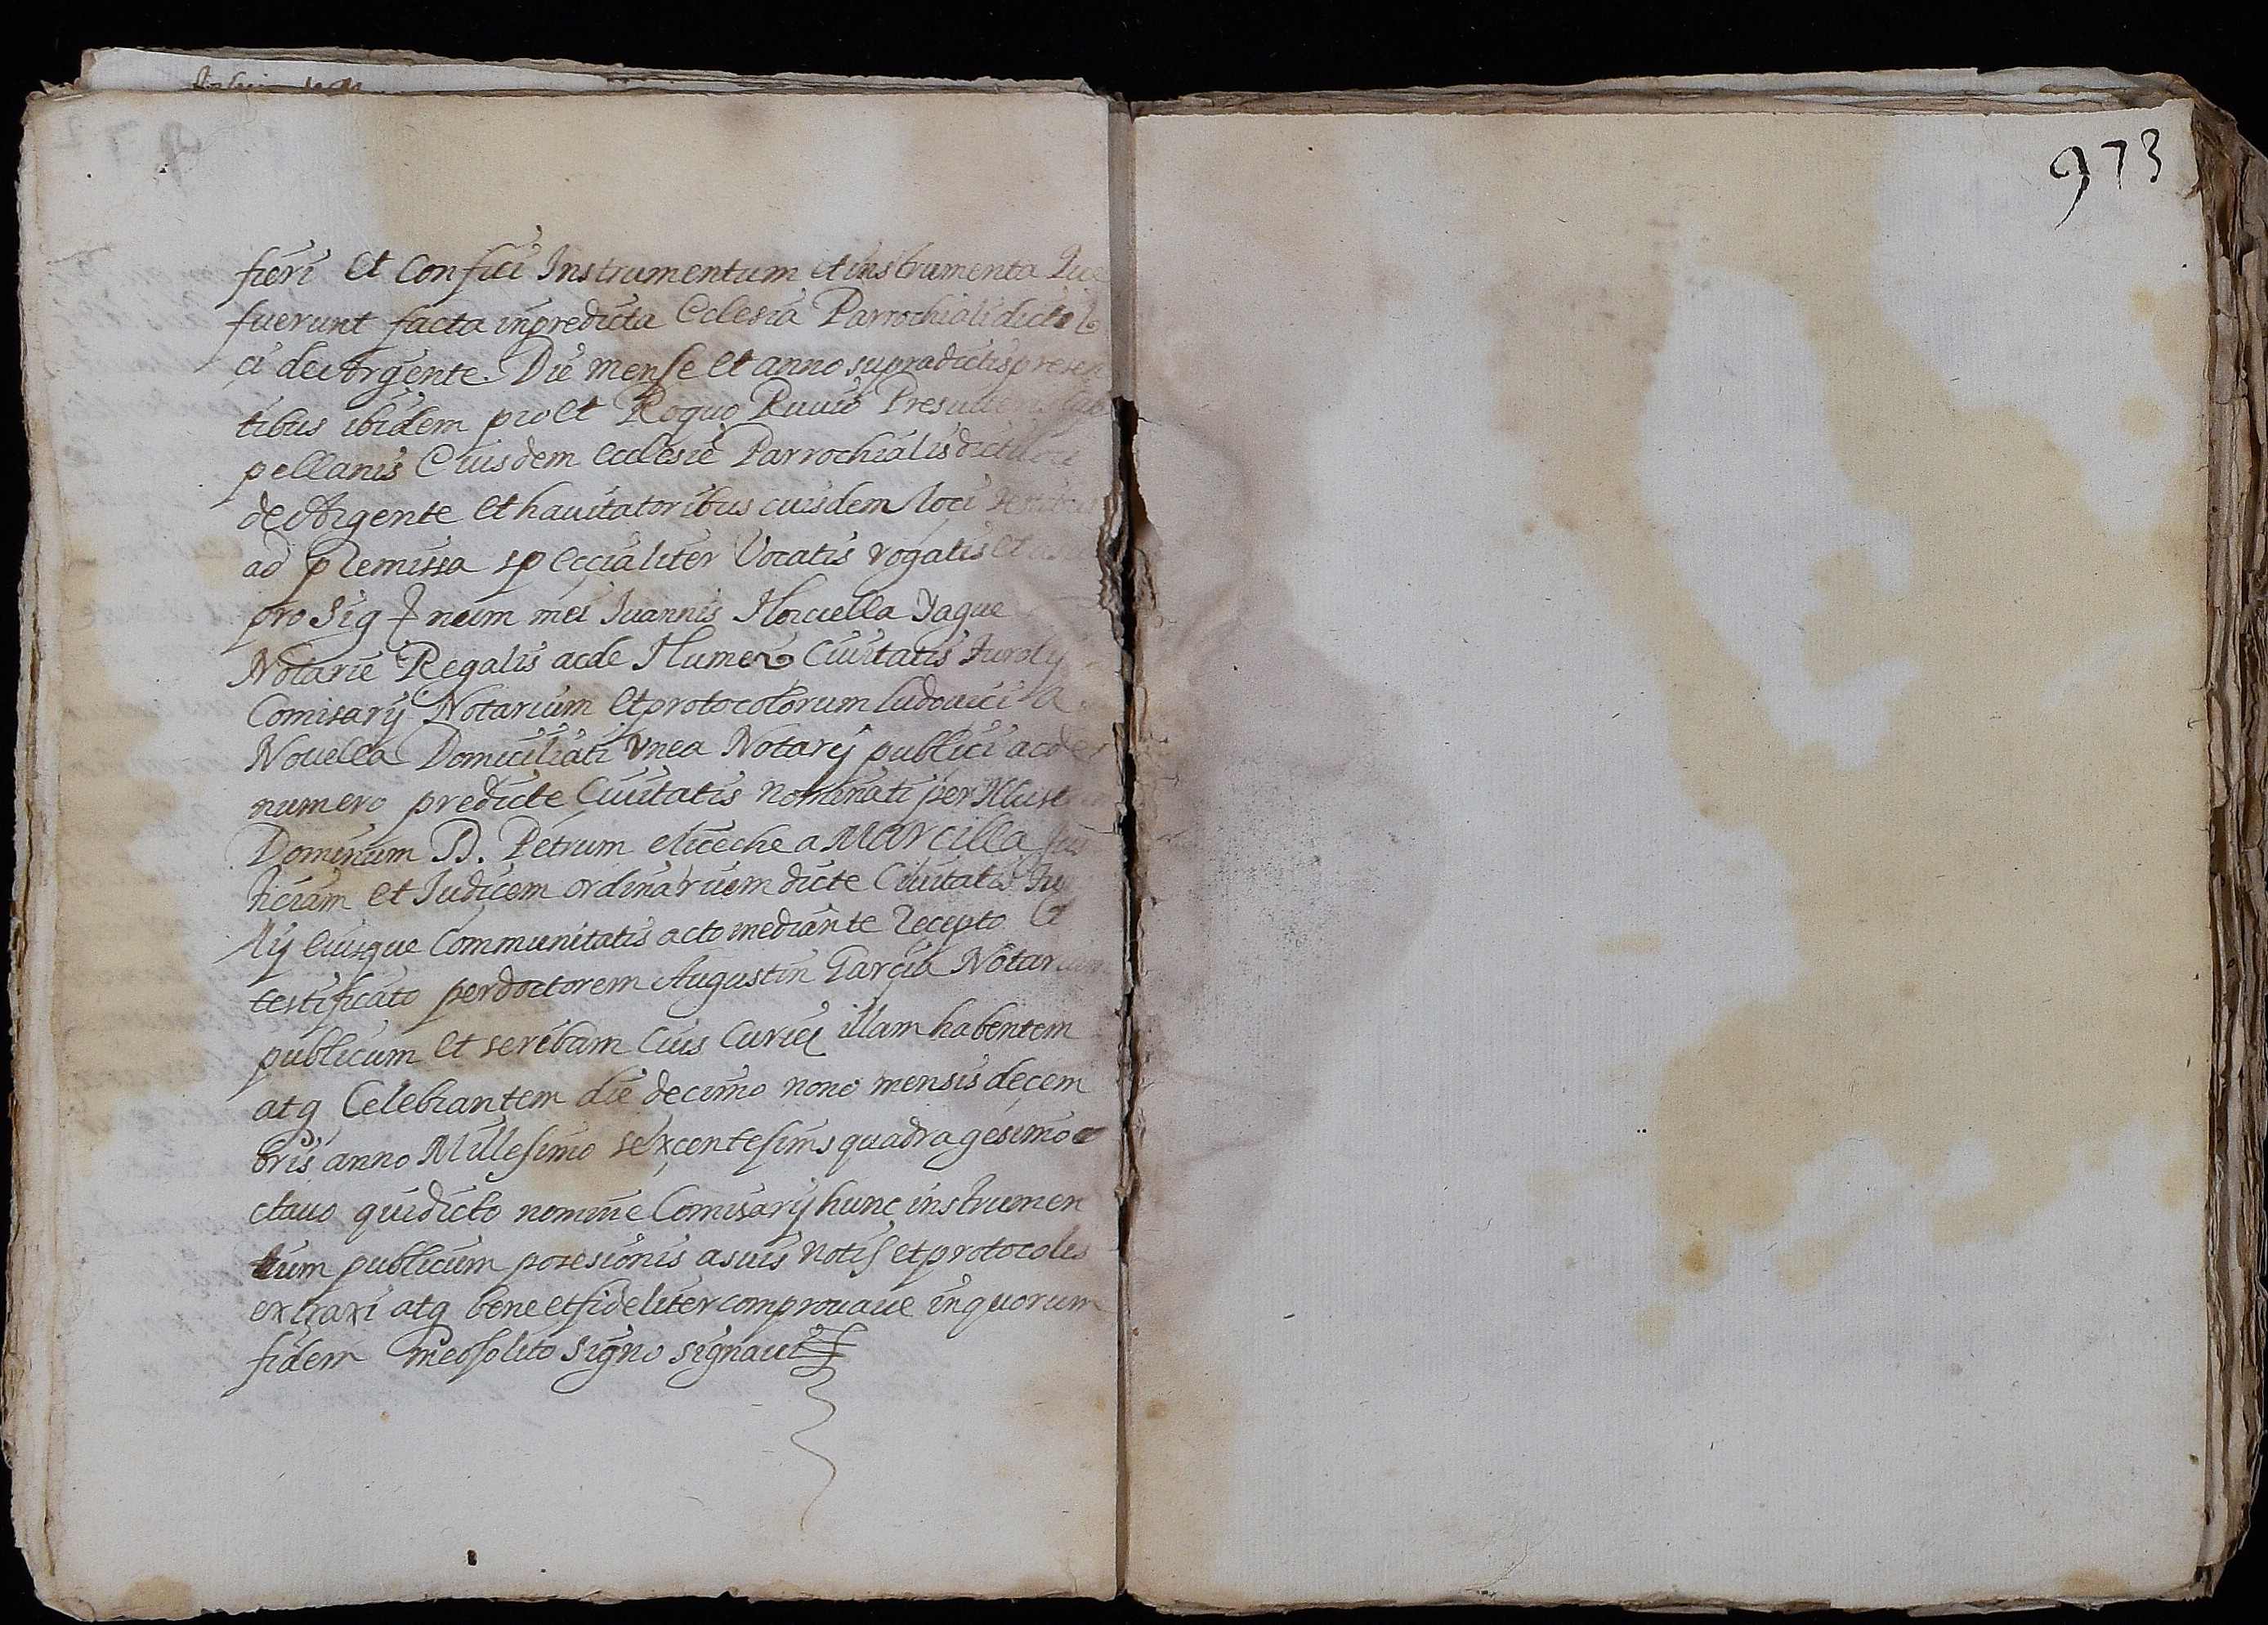 fieri et confici Instrumentum et instrumenta Que
fuerunt facta in predicta Eclesia Parrochiali dicti lo
ci de Argente. Die mense et anno supradictis presen
tibus ibidem pio et Roquo Ruuio
pellanis Eiusdem Ecclesie Parrochialis dicti loci
de Argente et hauitatoribus eiusdem loci testibus
ad premissa specialiter Vocatis rogatis et
pro Sig num mei Juannis Horuella Yague
Notarie Regalis ac de Numero Ciuitatis Turolij
Comisarij Notarium et protocolorum ludouici
Nouella Domiciliati Notarij publici ac de
numero predicte Ciuitatis nominati per Illust
Dominum D. Petrum a Marcilla Jus
ticiam et Judicem ordinarium dicte Ciuitatis Turo
lij eiusque Communitatis acto mediante recepto et
testificato per doctorem Augustin Garçia Notarium
publicum et scribam eius Curie illam habentem
atq Celebrantem die decimo nono mensis deçem
bris anno Millesimo sexcentesimo quadragesimo o
ctauo qui dicto nomine Comisarij hunc instrumen
tum publicum posesionis a suis notis et protocolis
extraxi atq bene et fideliter comprouaue in quorum
fidem meo solito signo signaui
973